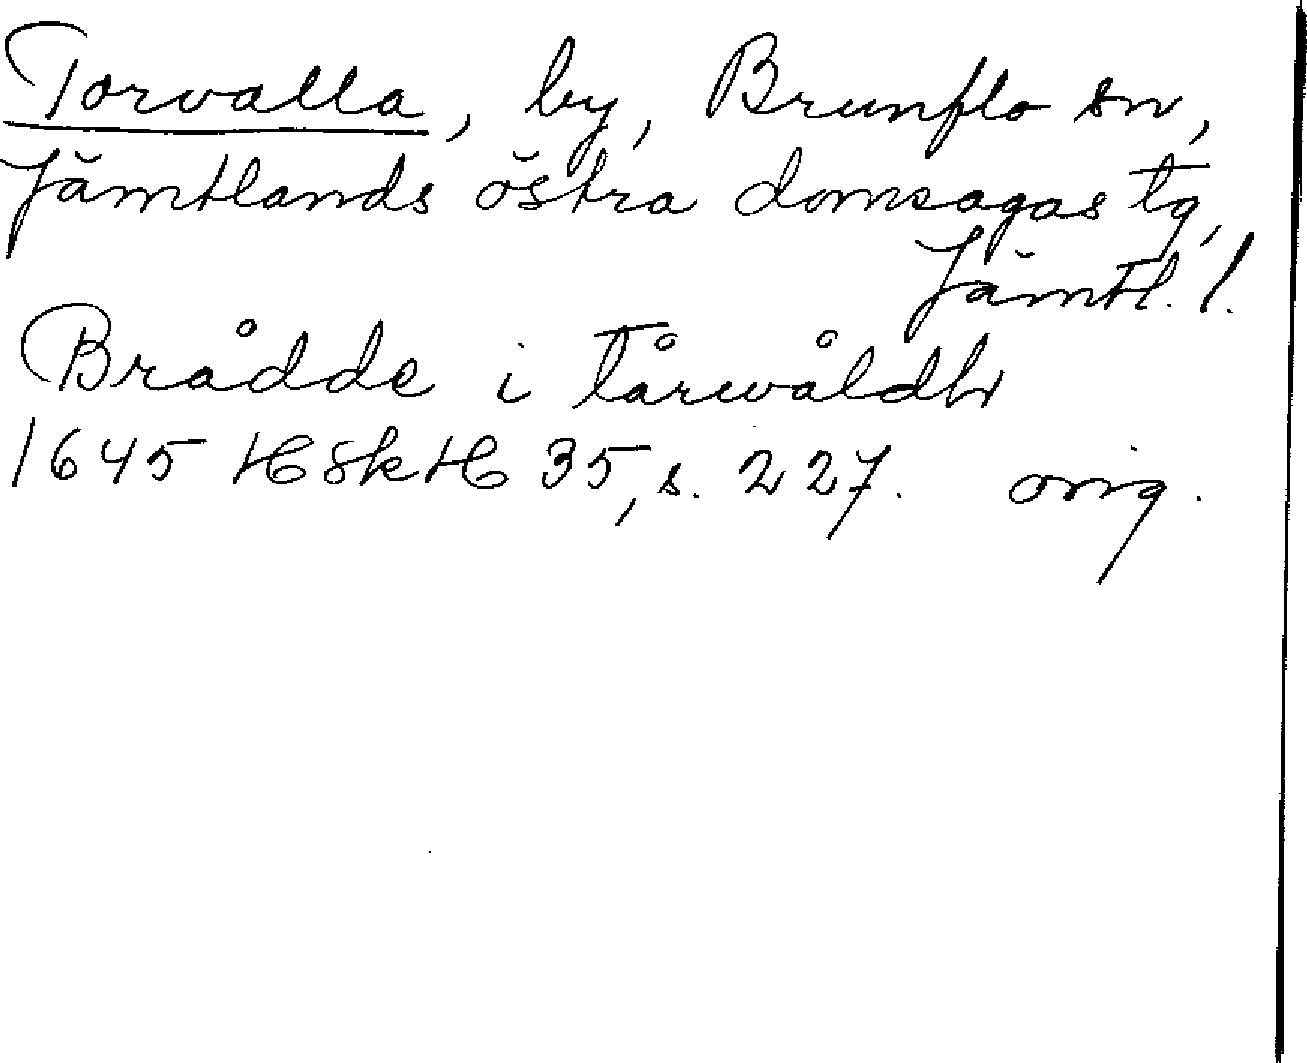 Torvalla, by, Brunflo sn,
Jämtlands östra domsagas tg,
Jämtl. l.
Brådde i Tårwåldh
1645 HSkH 35, s. 227. orig.